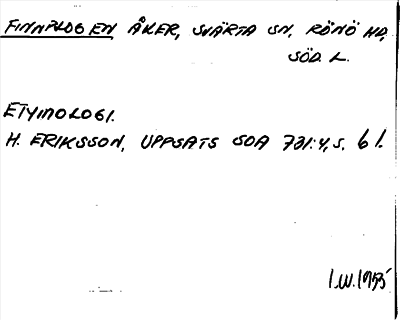 FINNPLOGEN, ÅKER, SVÄRTA SN, RÖNÖ HD,
SÖD. L.
ETYMOLOGI.
H. ERIKSSON, UPPSATS SOA 731:4, S. 61.
I.W. 1955